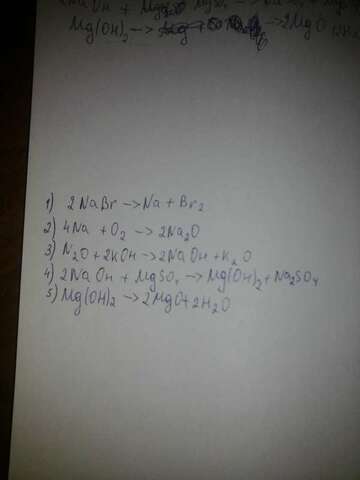 Mg(OH)₂ → 2MgO
1) 2NaBr → Na + Br₂
2) 4Na + O₂ → 2Na₂O
3) N₂O + 2KOH → 2NaOH + K₂O
4) 2NaOH + MgSO₄ → Mg(OH)₂ + Na₂SO₄
5) Mg(OH)₂ → 2MgO + 2H₂O